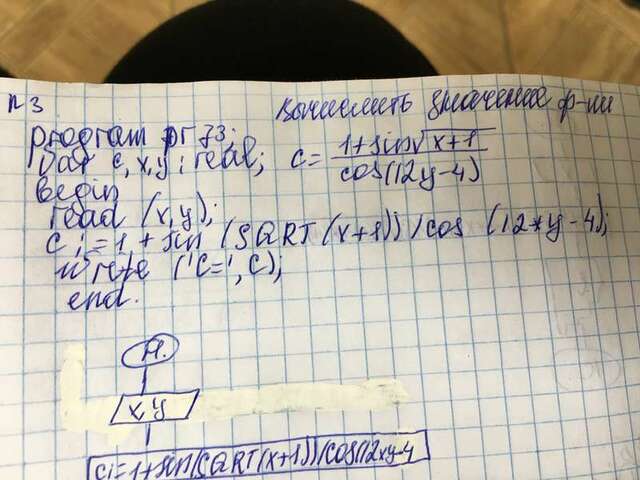 n3 Вычислить значение ф-ии
program pr73;
var c, x, y: real; c = 1+sin√x+1 / cos(12y-4)
begin
read (x,y);
c := 1 + sin (SQRT(x+1)) / cos (12*y-4);
write ('c=', c);
end.
Н.
x, y
c:=1+sin(SQRT(x+1))/cos(12xy-4